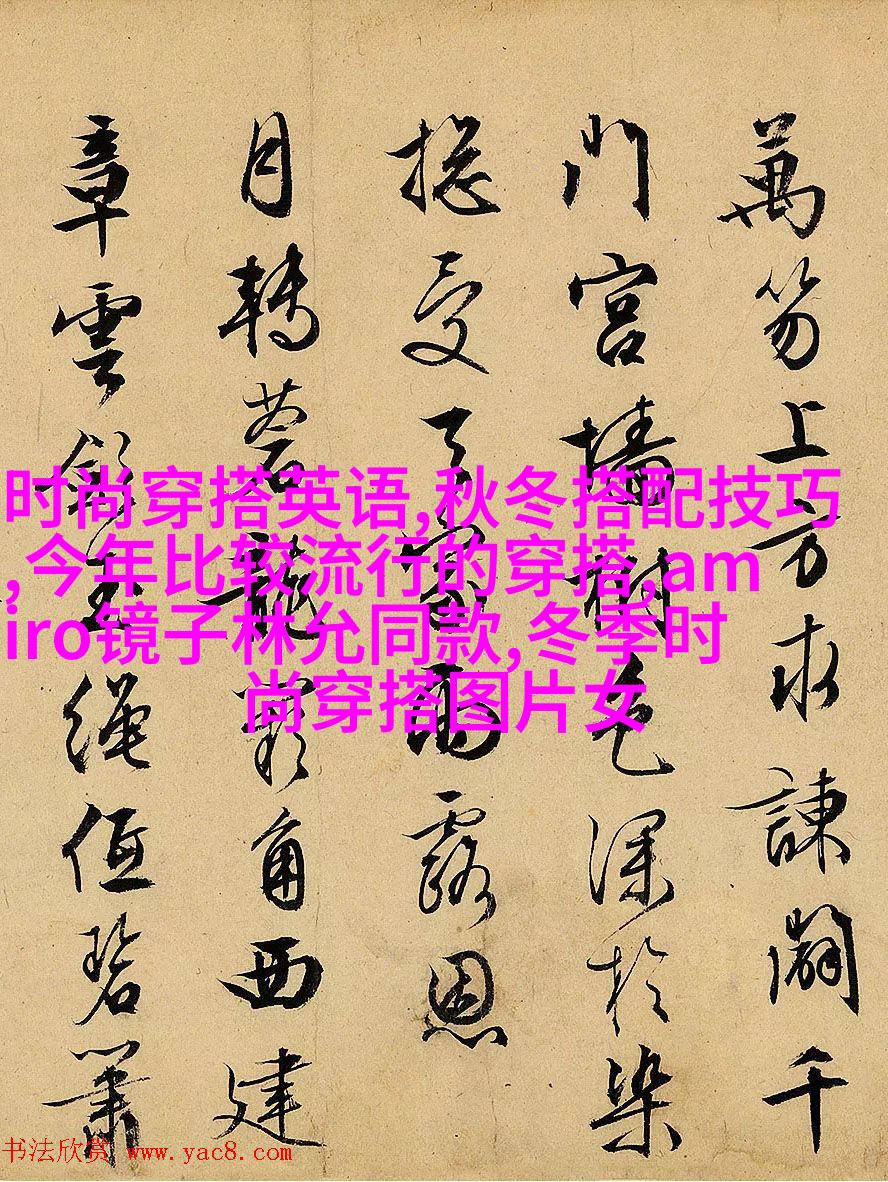 萬笏上方求諫闢千
門宮墻樹色深於染
揔受雨露恩
月轉蒼龍闕角西建
章雲斂玉繩低碧簫
时尚穿搭英语,秋冬搭配技巧
,今年比较流行的穿搭,am
iro镜子林允同款,冬季时
尚穿搭图片女
书法欣赏 www.yac8.com